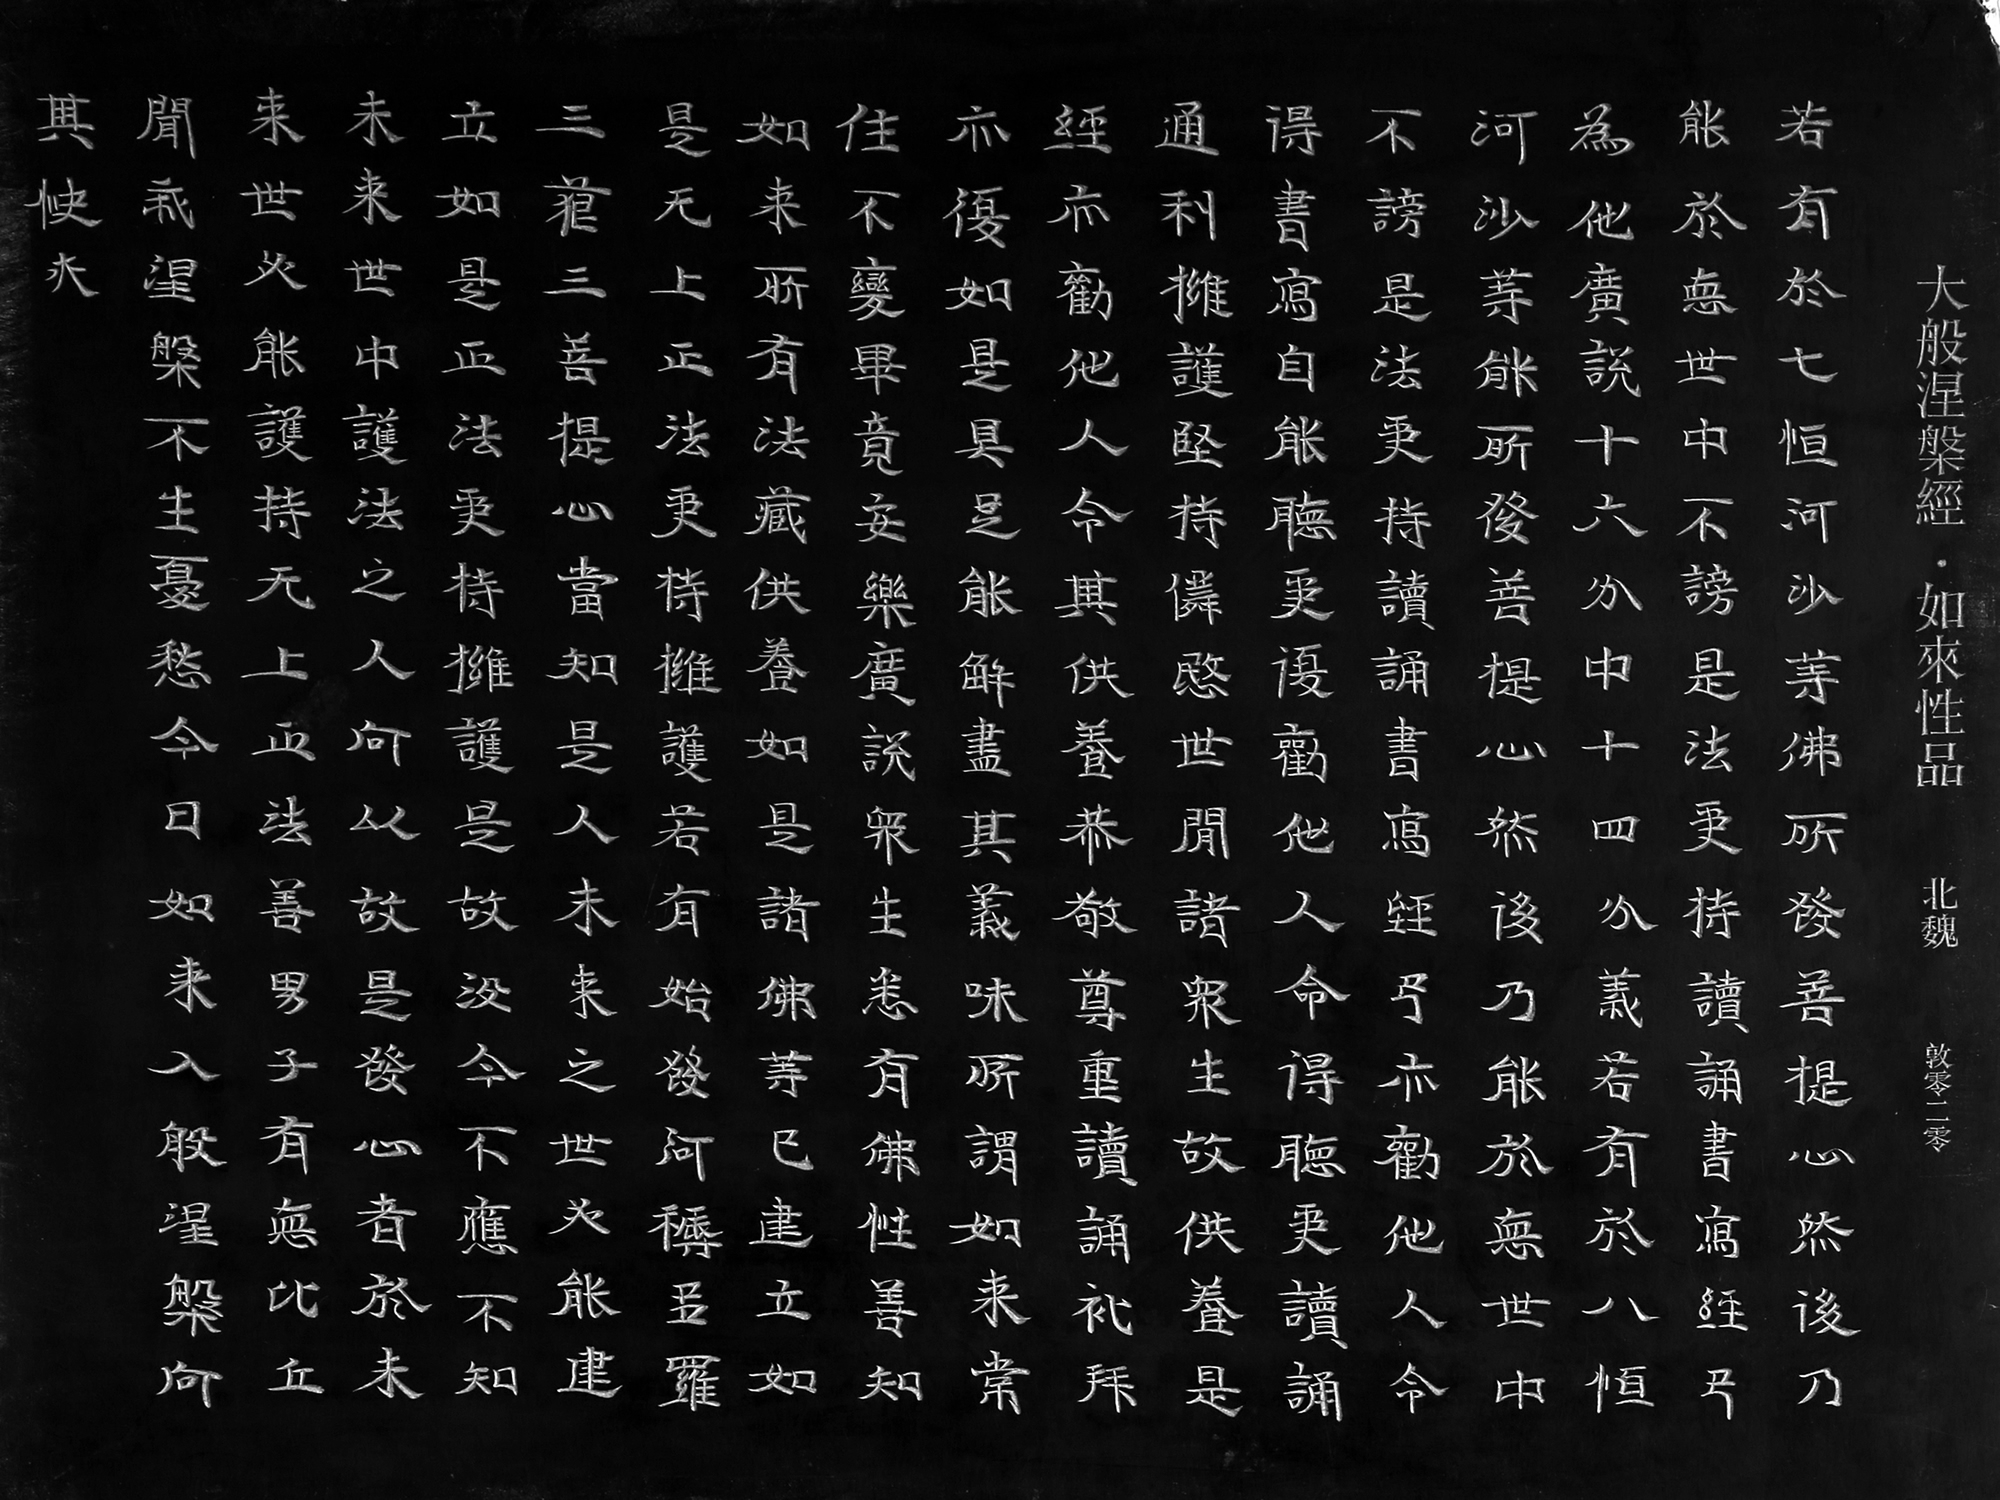 大般涅槃經·如來性品 北魏 敦零二零
若有於七恒河沙等佛所發菩提心然後乃
能於惡世中不謗是法受持讀誦書寫經卷
為他廣說十六分中十四分義若有於八恒
河沙等佛所發菩提心然後乃能於惡世中
不謗是法受持讀誦書寫經卷亦勸他人令
得書寫自能聽受復勸他人令得聽受讀誦
通利擁護堅持憐愍世間諸眾生故供養是
經亦勸他人令其供養恭敬尊重讀誦礼拜
亦復如是具足能解盡其義味所謂如来常
住不變畢竟安樂廣說眾生悉有佛性善知
如来所有法藏供養如是諸佛等已建立如
是无上正法受持擁護若有始發阿耨多羅
三藐三菩提心當知是人未来之世必能建
立如是正法受持擁護是故汝今不應不知
未来世中護法之人何以故是發心者於未
来世必能護持无上正法善男子有惡比丘
聞我涅槃不生憂愁今日如来入般涅槃何
其快夫